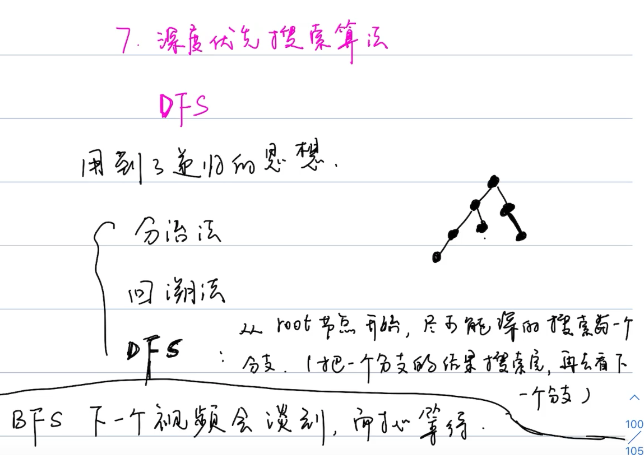 7. 深度优先搜索算法
DFS
用到了递归的思想.
分治法
回溯法
DFS : 从 root 节点开始, 尽可能深的搜索每一个
分支. (把一个分支的结果搜索完, 再去看下
一个分支)
BFS 下一个视频会谈到, 敬等待.
100
105